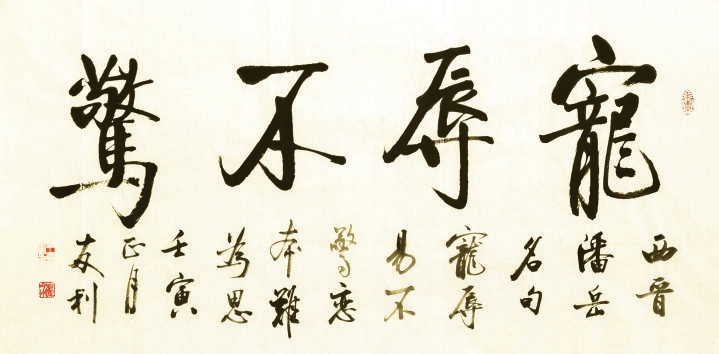 寵辱不驚
西晉
潘岳
名句
寵辱
易不
驚戀
本難
為思
壬寅
正月
友利